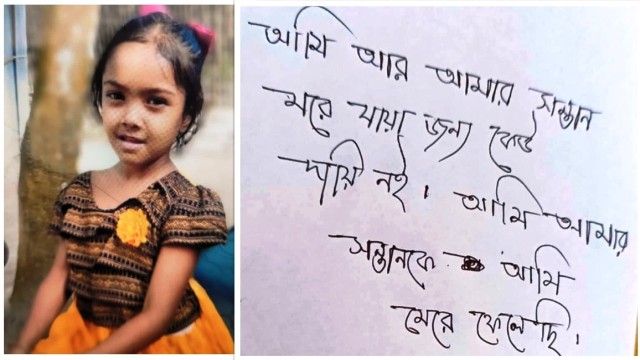 আমি আর আমার সন্তান
মরে যায়া জন্য কেউ
দায়ি নই। আমি আমার
সন্তানকে আমি
মেরে ফেলেছি।